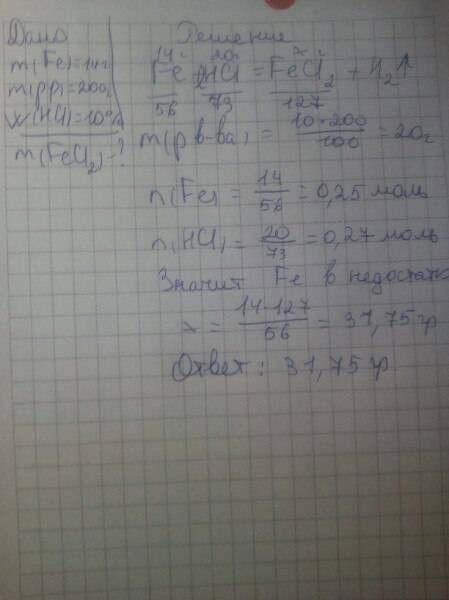 Дано
m(Fe)=14г
m(рр)=200г
W(HCl)=10%
m(FeCl2)-?
Решение
14 20г x г
Fe + 2HCl = FeCl2 + H2↑
56 73 127
m(р в-ва) = 10·200/100 = 20г
n(Fe) = 14/56 = 0,25 моль
n(HCl) = 20/73 = 0,27 моль
Значит Fe в недостатк
x = 14·127/56 = 31,75 гр
Ответ: 31,75 гр